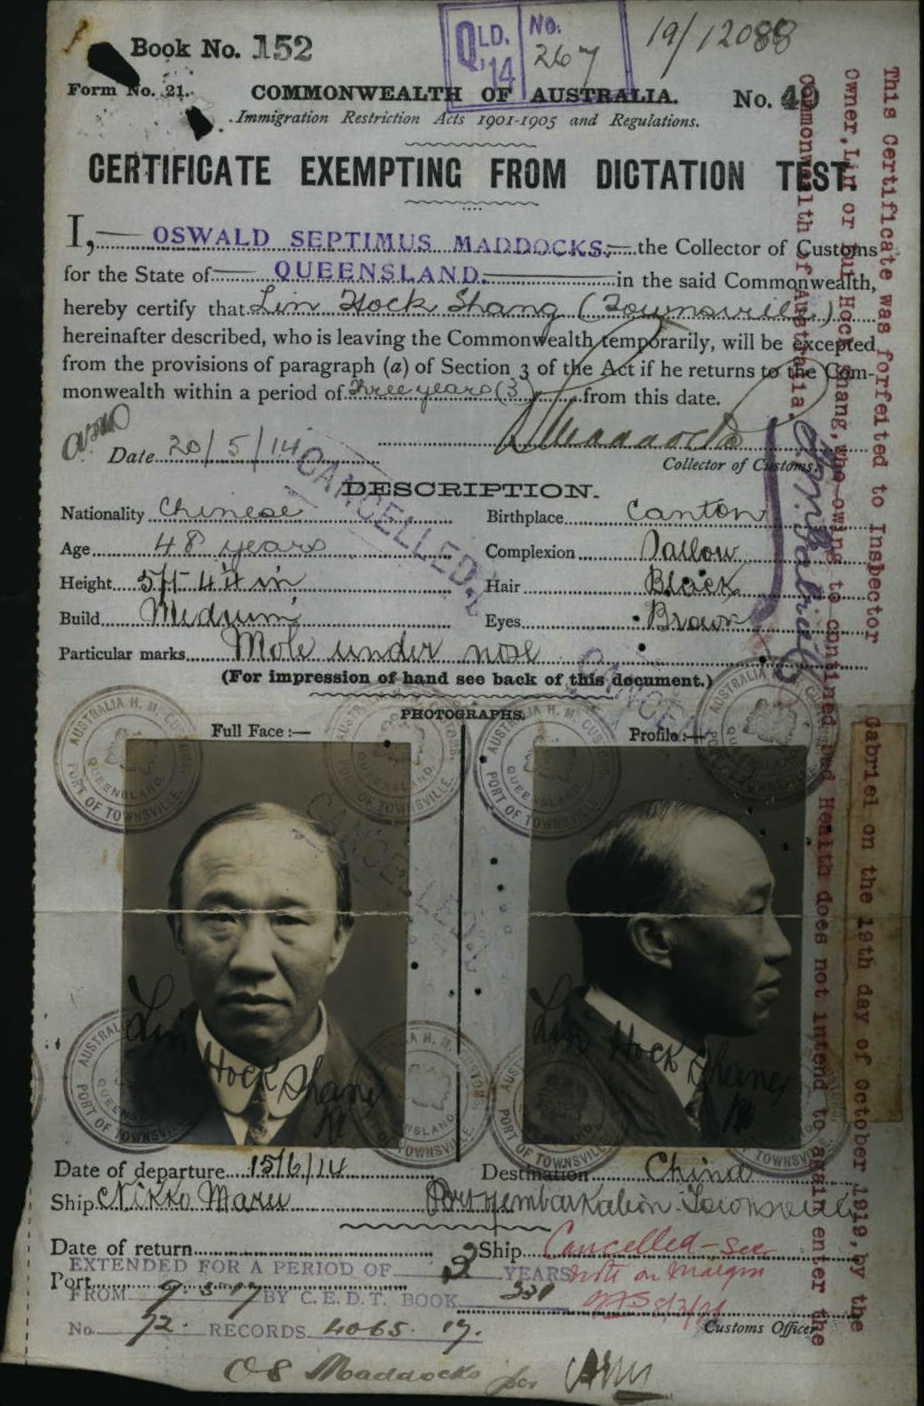 Book No. 152
QLD. '14 No. 267
19/12088
Form No. 21.
COMMONWEALTH OF AUSTRALIA.
No. 40
Immigration Restriction Acts 1901-1905 and Regulations.
CERTIFICATE EXEMPTING FROM DICTATION TEST.
I, OSWALD SEPTIMUS MADDOCKS, the Collector of Customs
for the State of QUEENSLAND. in the said Commonwealth,
hereby certify that Lim Hock Shang (Townsville)
hereinafter described, who is leaving the Commonwealth temporarily, will be excepted
from the provisions of paragraph (a) of Section 3 of the Act if he returns to the Com-
monwealth within a period of Three years (3) from this date.
O S Maddocks
Date 20/5/14
Collector of Customs.
CANCELLED.
DESCRIPTION.
Nationality Chinese
Birthplace Canton
Age 48 years
Complexion Sallow
Height 5ft 4¼ in
Hair Black
Build Medium
Eyes Brown
Particular marks Mole under nose
(For impression of hand see back of this document.)
PHOTOGRAPHS.
Full Face:—
Profile:—
AUSTRALIA H. M. CUSTOMS QUEENSLAND. PORT OF TOWNSVILLE.
CANCELLED.
Lim Hock Shang
Lim Hock Shang
Date of departure 15/6/14
Destination China
Ship Nikko Maru
Port of embarkation Townsville
Date of return
Ship Cancelled - see
note on margin
EXTENDED FOR A PERIOD OF 3 YEARS
Port
FROM 9.5.17 BY C.E.D.T. BOOK
No. 72. RECORDS 4065.17.
Customs Officer
O S Maddocks for
This Certificate was forfeited to Inspector Gabriel on the 19th day of October 1919, by the
Owner, Lim Hock Shang, who owing to continued bad Health does not intend to again enter the
Commonwealth of Australia.